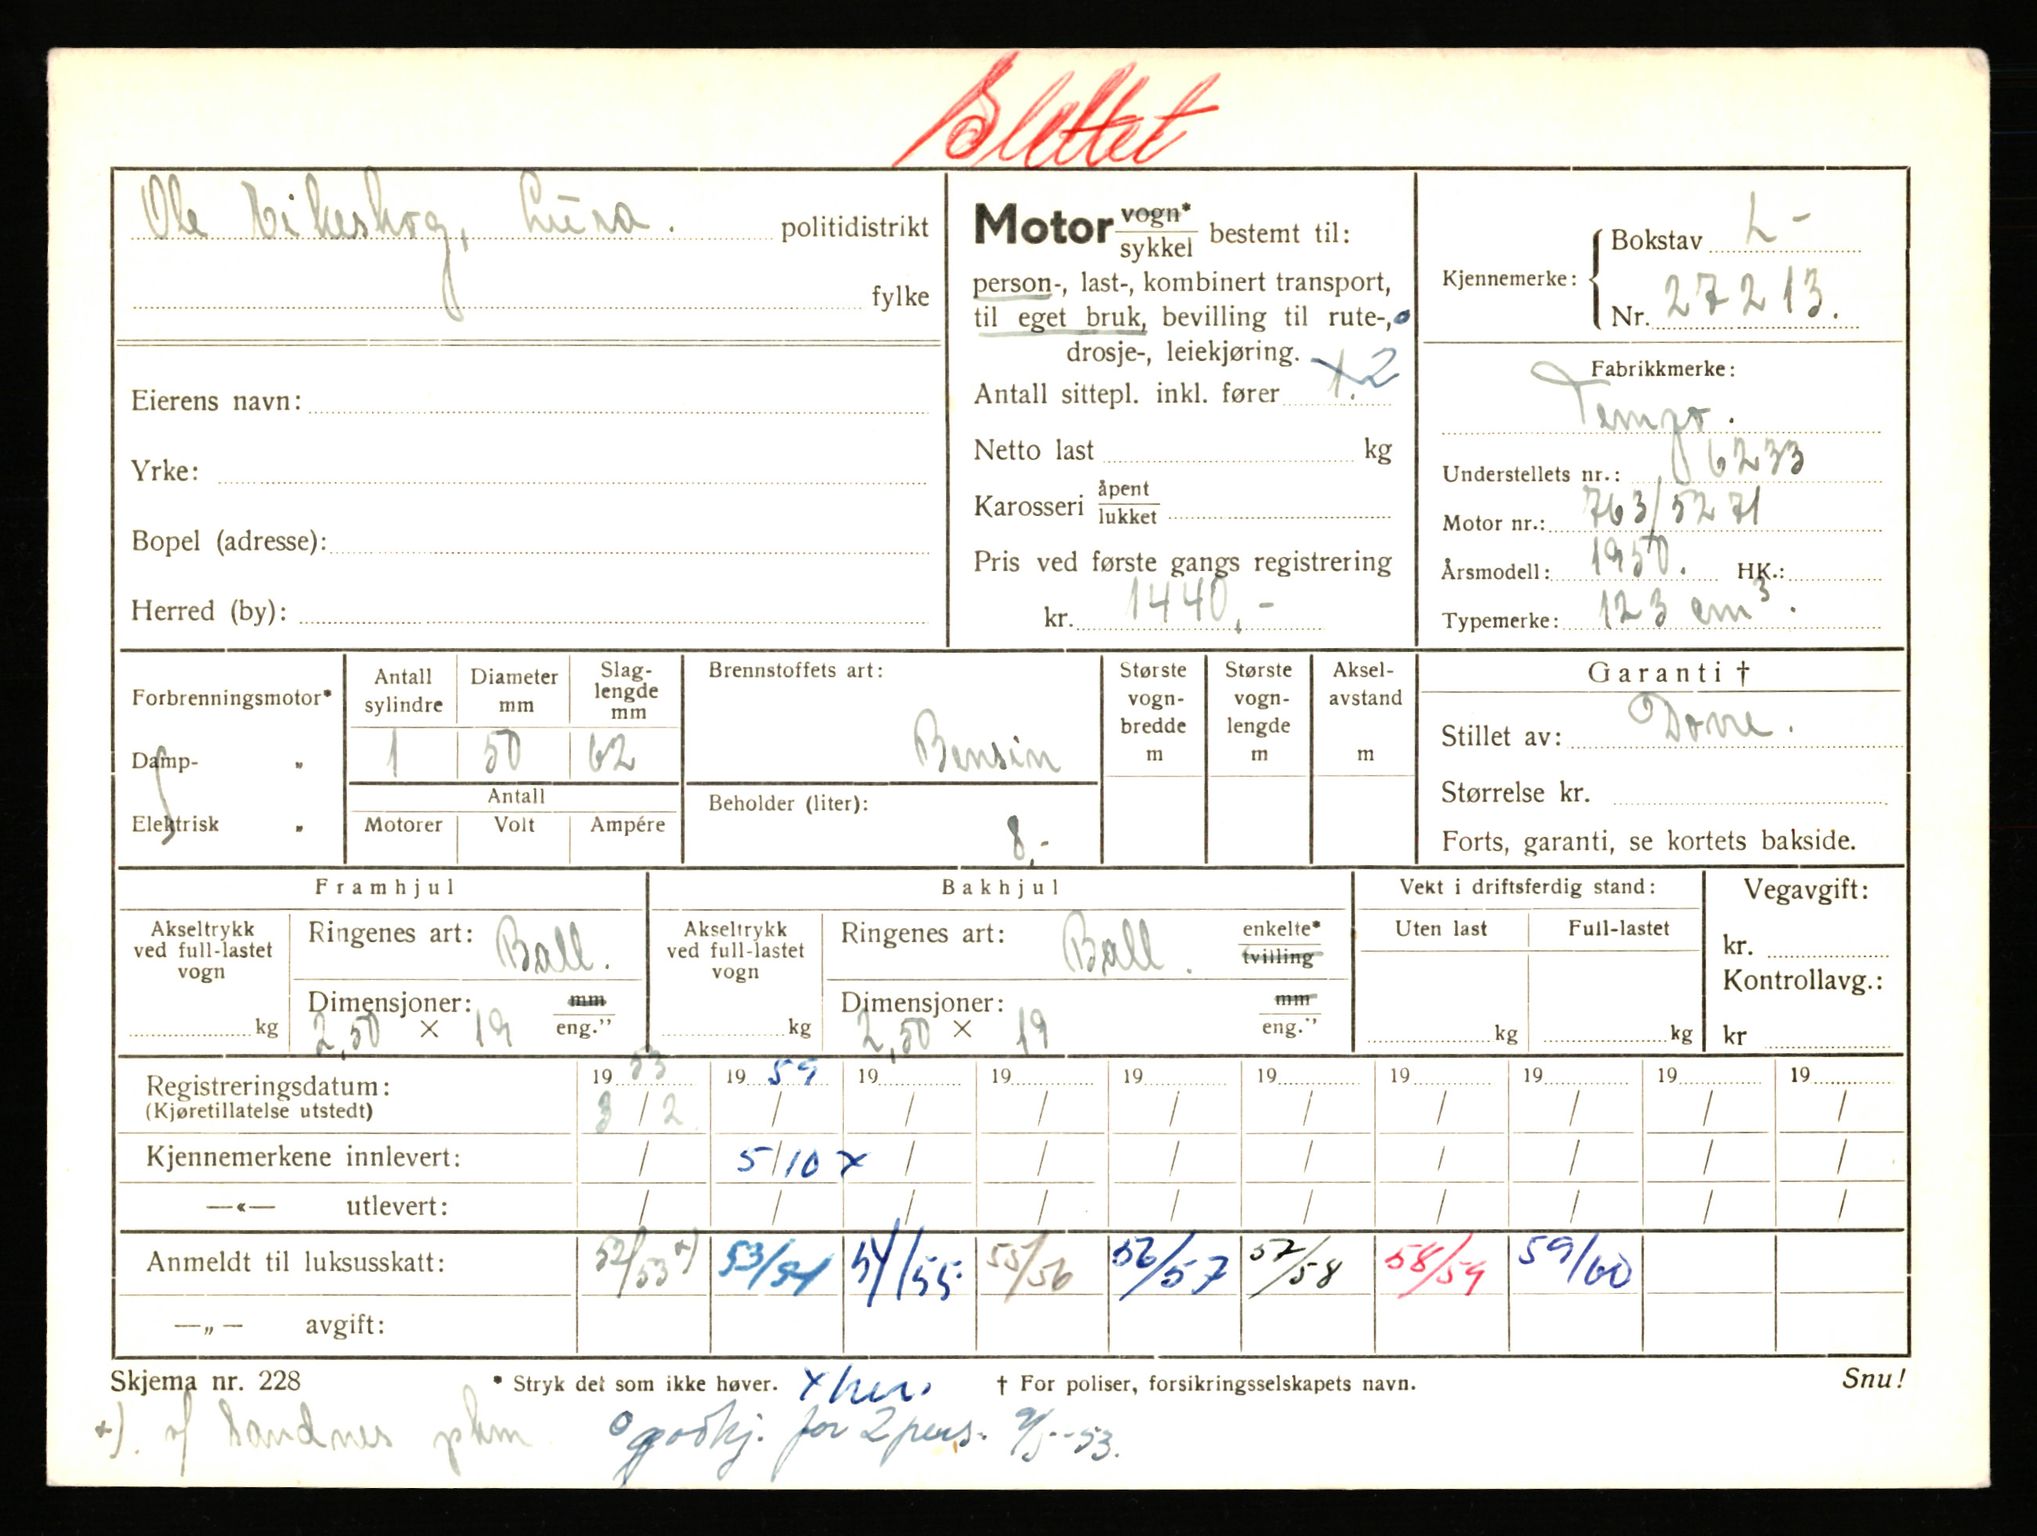 Slettet
Ole Vikeskog, Lura. politidistrikt
fylke
Eierens navn:
Yrke:
Bopel (adresse):
Herred (by):
Motor vogn* / sykkel bestemt til:
person-, last-, kombinert transport,
til eget bruk, bevilling til rute-, o
drosje-, leiekjøring.
Antall sittepl. inkl. fører 1. 2
Netto last kg
Karosseri åpent / lukket
Pris ved første gangs registrering
kr. 1440,-
Kjennemerke: Bokstav L-
Nr. 27213.
Fabrikkmerke:
Tempo.
Understellets nr.: 6233
Motor nr.: 763/5271
Årsmodell: 1950. HK.:
Typemerke: 123 cm³.
Forbrenningsmotor*
Damp- „
Elektrisk „
Antall sylindre Diameter mm Slag-lengde mm
1 50 62
Antall
Motorer Volt Ampére
Brennstoffets art:
Bensin
Beholder (liter):
8,-
Største vogn-bredde m
Største vogn-lengde m
Aksel-avstand m
Garanti †
Stillet av: Dovre.
Størrelse kr.
Forts, garanti, se kortets bakside.
Framhjul
Akseltrykk ved full-lastet vogn
kg
Ringenes art: Ball.
Dimensjoner: mm
2,50 × 19 eng.”
Bakhjul
Akseltrykk ved full-lastet vogn
kg
Ringenes art: Ball. enkelte* / tvilling
Dimensjoner: mm
2,50 × 19 eng.”
Vekt i driftsferdig stand:
Uten last Full-lastet
kg kg
Vegavgift:
kr.
Kontrollavg.:
kr
Registreringsdatum: 19 53 19 59 19 19 19 19 19 19 19 19
(Kjøretillatelse utstedt) 3 / 2 / / / / / / / / /
Kjennemerkene innlevert: / 5/10 x / / / / / / / /
—«— utlevert: / / / / / / / / / /
Anmeldt til luksusskatt: 52/53 x) 53/54 54/55. 55/56 56/57 57/58 58/59 59/60
—„— avgift:
Skjema nr. 228 * Stryk det som ikke høver. x her. † For poliser, forsikringsselskapets navn. Snu!
x). af Sandnes pkm o godkj. for 2 pers. 9/5-53.